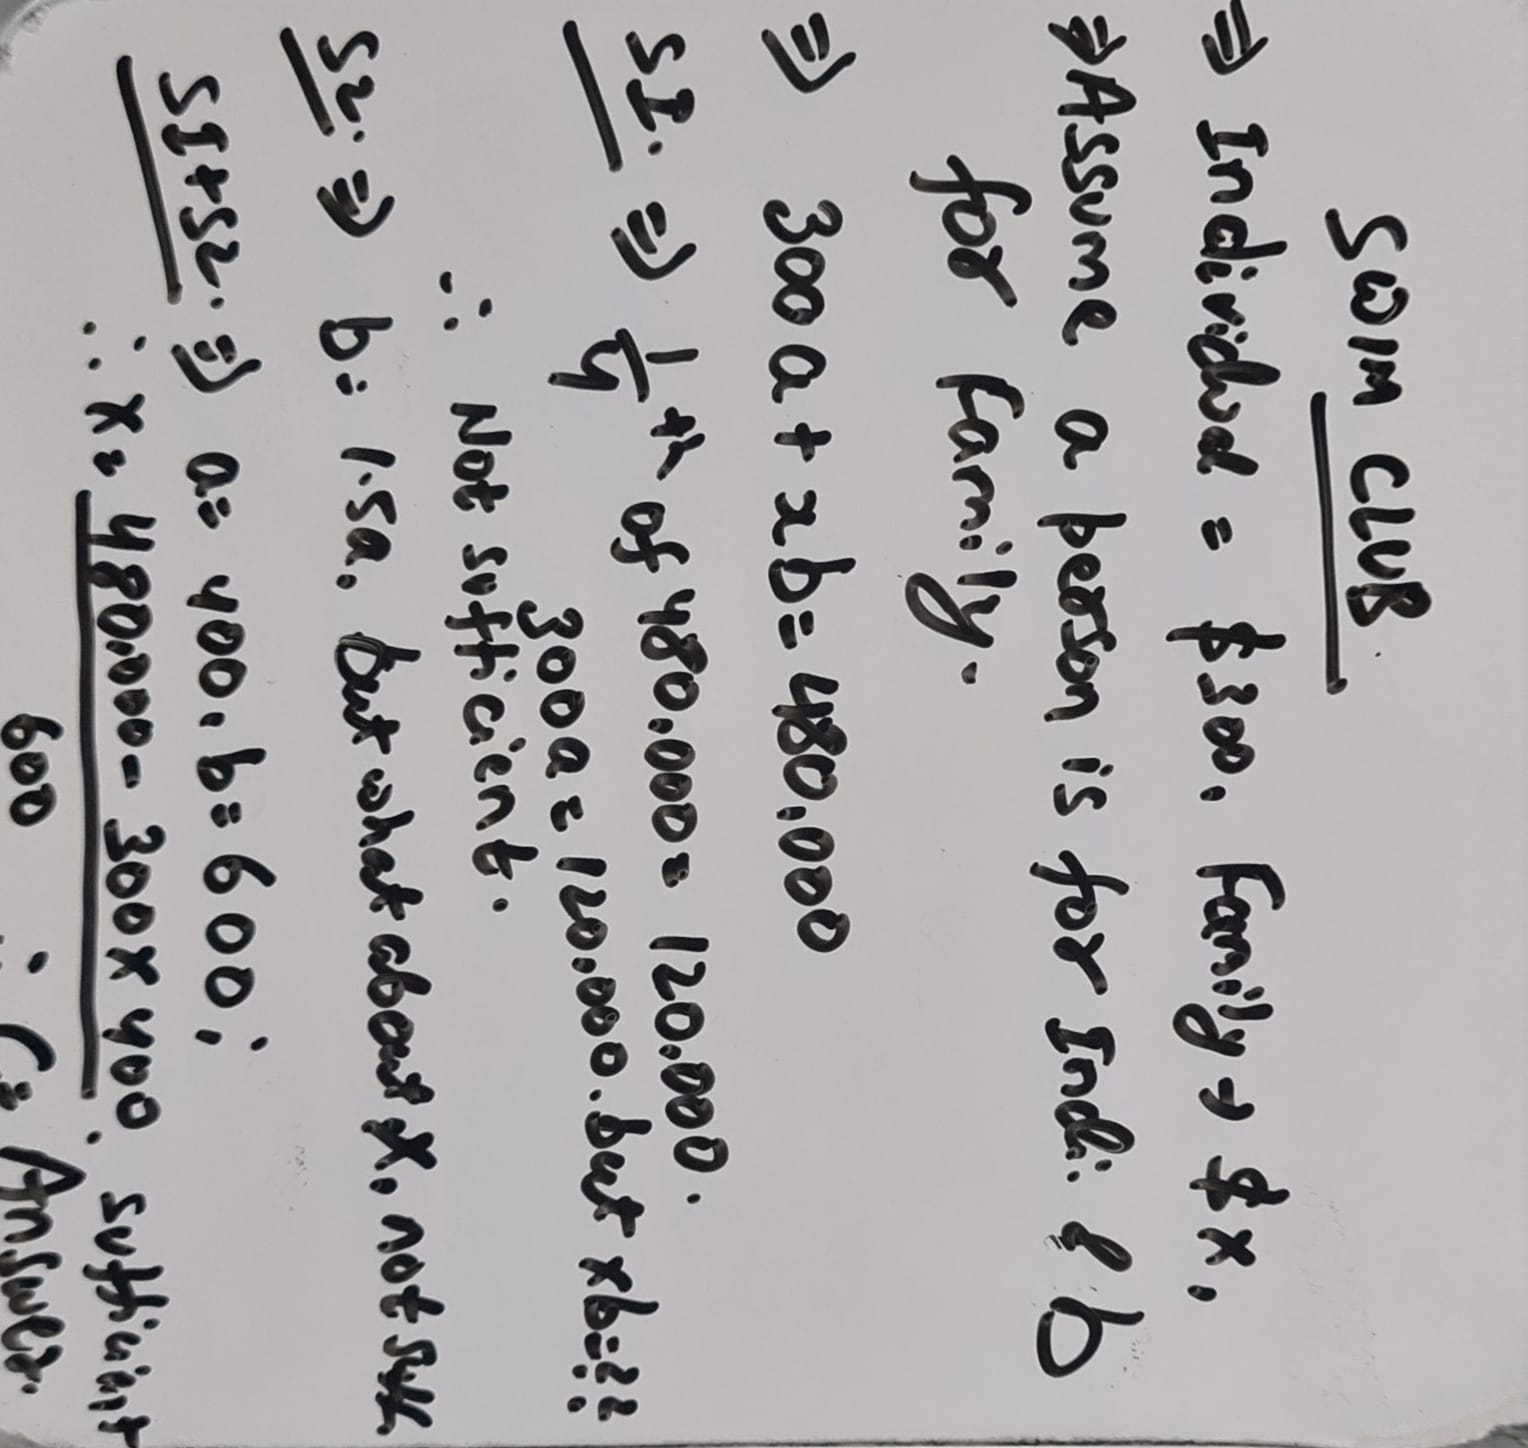 SWIM CLUB
⇒ Individual = $300, Family → $x,
⇒ Assume a person is for Indi. & b
for Family.
⇒ 300a + xb = 480,000
S1. ⇒ 1/4 th of 480,000 = 120,000.
300a = 120,000. but xb = ??
∴ Not sufficient.
S2. ⇒ b = 1.5a. but what about x, not suff.
S1+S2. ⇒ a = 400, b = 600;
∴ x = 480,000 - 300 x 400 . sufficient
600 ∴ C is Answer.